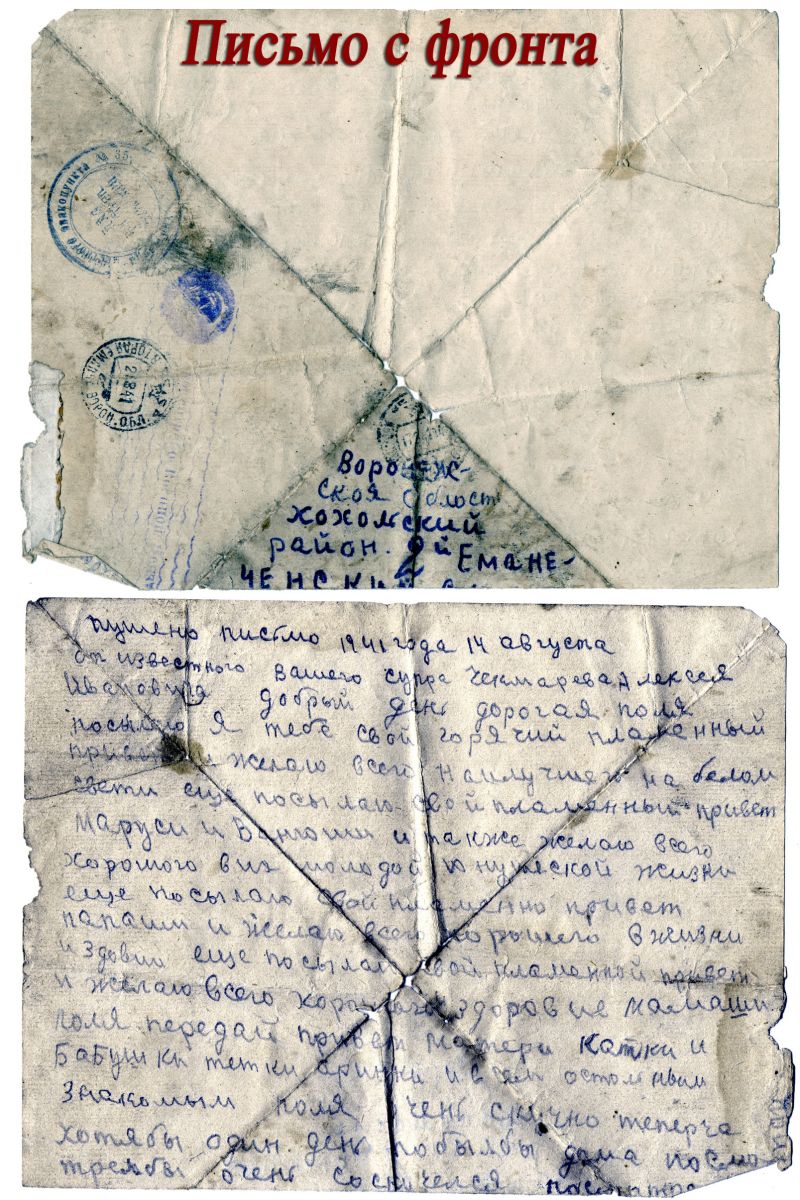 Письмо с фронта
эвакопункта №
21.8.41
ВОРОН. ОБЛ.
Воронеж-
ская област
хохольский
район. 2й Емане-
ченски
пушено писмо 1941 года 14 августа
от известного вашего супра Чекмарева Алексея
Ивановича добрый день дорогая поля
посылаю я тебе свой горячий пламенный
привет и желаю всего наилучшего на белом
свети еще посылаю свой пламенный привет
Маруси и Ванюши и также желаю всего
хорошого вих молодой юнушской жизни
еще посылаю свой пламенно привет
папаши и желаю всего хорошего в жизни
и здовю еще посылаю свой пламенной привет
и желаю всего хорошого здоровие мамаши
поля передай привет матери Катки и
Бабушки тетки аринки и всем остольным
знакомым поля чень скучно теперча
хотябы один день побылбы дома посмо
трелбы очень соскучелся